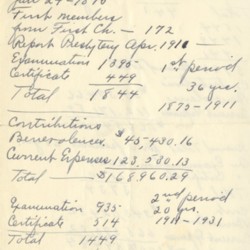 Jan 24-1875
First members
from First Ch. — 172
Report Presbytery Apr. 1911 —
Examination 1395 1st period
Certificate 449 36 yrs.
Total 1844 1875-1911
Contributions
Benevolences. $45,430.16
Current Expenses 123,530.13
Total — $168,960.29
2nd period
Examination 935 20 yrs.
Certificate 514 1911-1931
Total 1449